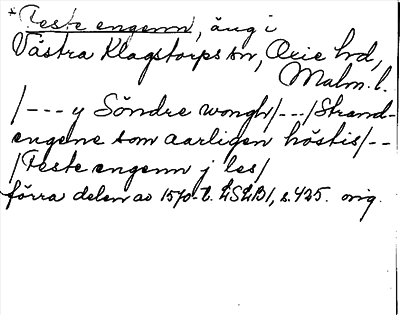 *Feste engenn, äng i
Västra Klagstorps sn, Oxie hd,
Malm. l.
/--- y Söndre wongh/---/Strand-
engene som aarligen höstis/--
/Feste engenn j les/
förra delen av 1570-t. LSLB1, s. 425. orig.